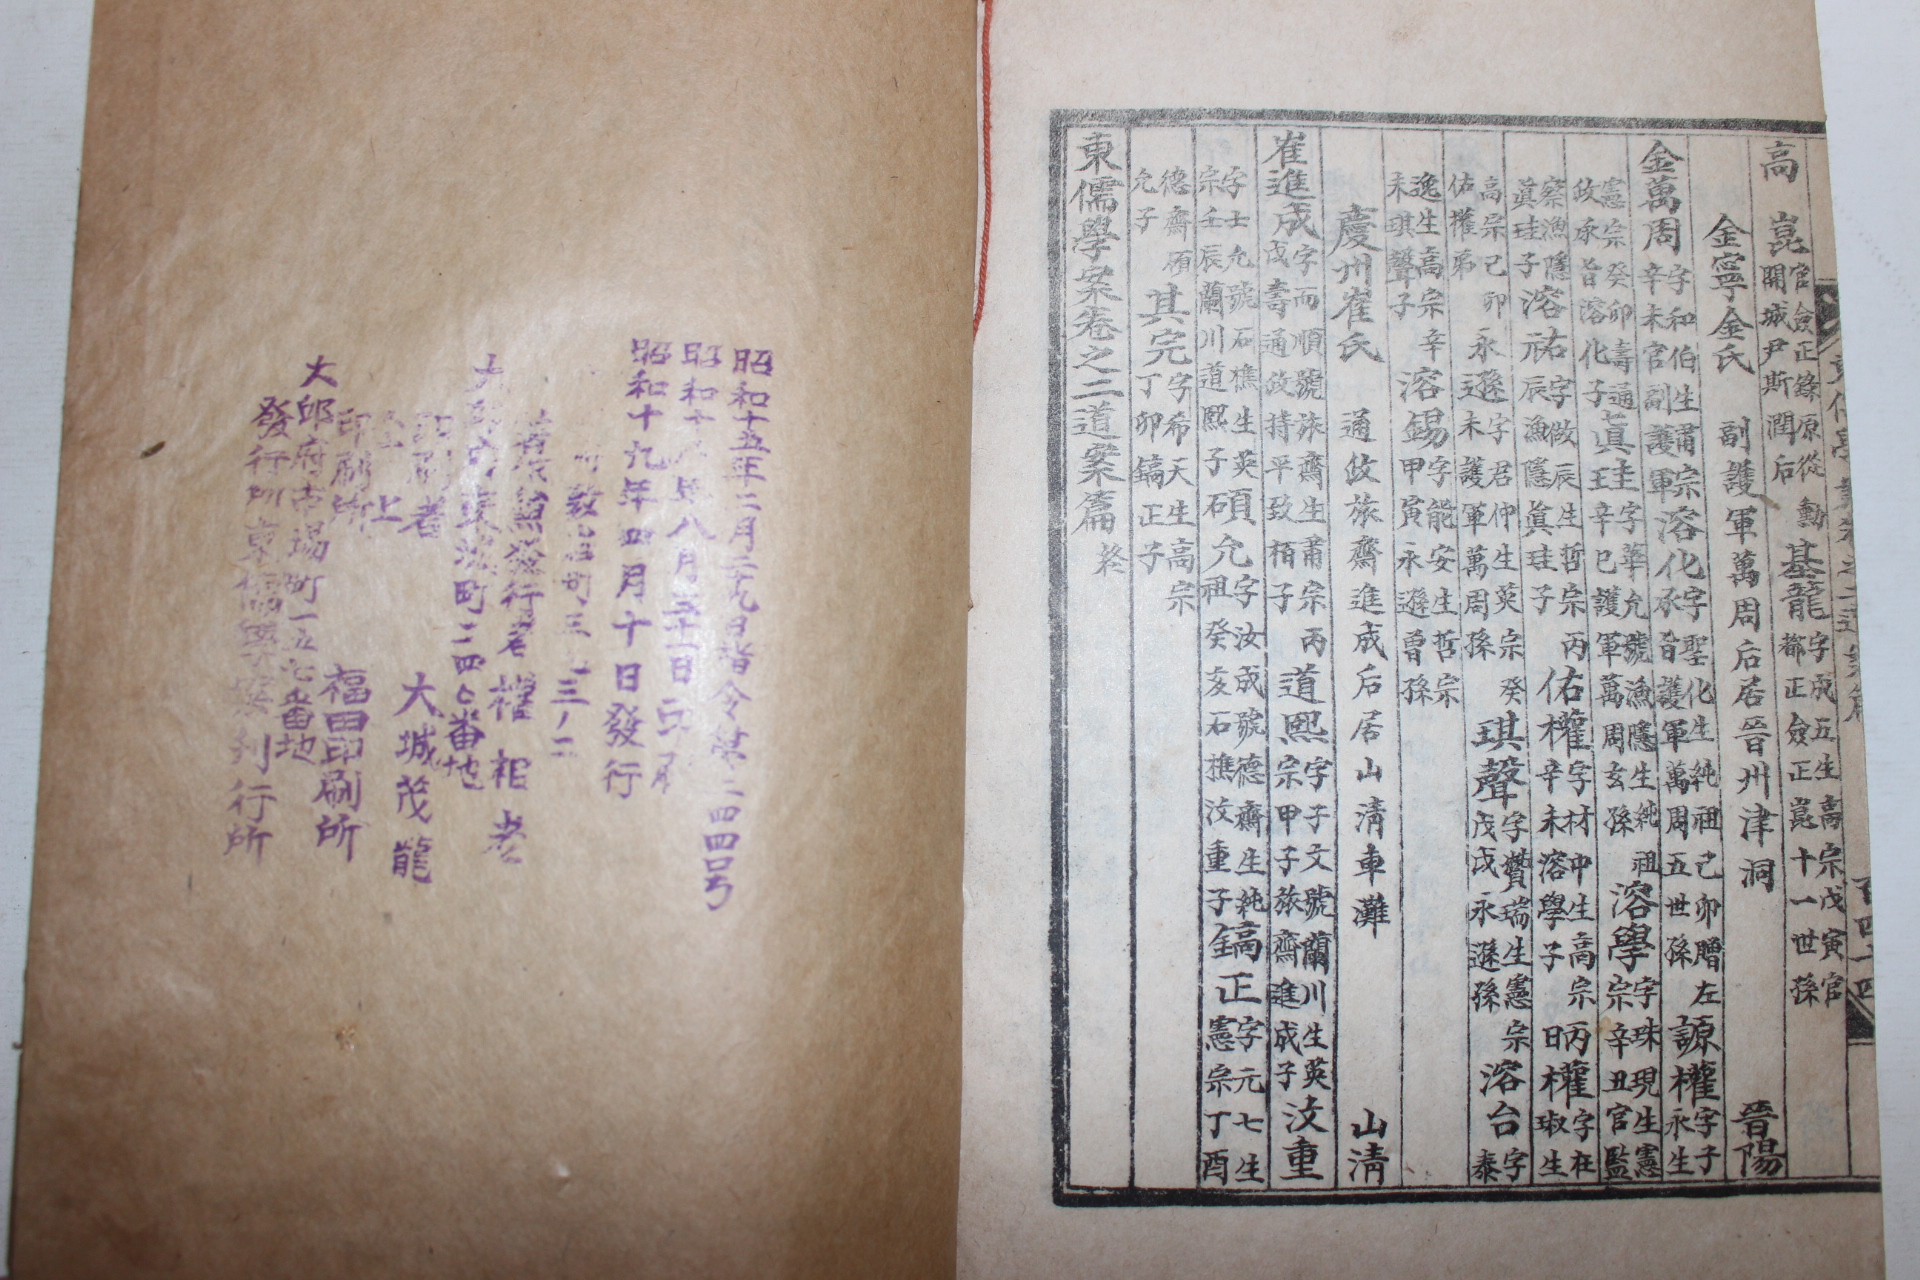 高崑 官僉正錄原從勳
開城尹斯潤后
基龍 字成五生高宗戊寅官
都正僉正崑十一世孫
金寧金氏 副護軍萬周后居晉州津洞 晉陽
金萬周 字和伯生肅宗
辛未官副護軍
溶化 字聖化生純祖己卯贈左
承旨護軍萬周五世孫
謜權 字子
永生
憲宗癸卯壽通
政承旨溶化子
眞圭 字華允號漁隱生純祖
辛巳護軍萬周玄孫
溶學 字珠現生憲
宗辛丑官監
察漁隱
眞珪子
溶祐 字敬辰生哲宗丙
辰漁隱眞珪子
佑權 字材中生高宗
辛未溶學子
日權 字在
琡生
高宗己卯
佑權弟
永遜 字君仲生英宗癸
未護軍萬周孫
琪聲 字贊瑞生憲宗
戊戌永遜孫
溶台 字
泰
逸生高宗辛
未琪聲子
溶錫 字能安生哲宗
甲寅永遜曾孫
慶州崔氏 通政旅齋進成后居山清車灘 山清
崔進成 字而順號旅齋生肅宗丙
戌壽通政持平致栢子
道熙 字子文號蘭川生英
宗甲子旅齋進成子
汶重
字士允號石樵生英
宗壬辰蘭川道熙子
碩允 字汝成號德齋生純
祖癸亥石樵汶重子
鎬正 字元七生
憲宗丁酉
德齋碩
允子
其完 字希天生高宗
丁卯鎬正子
東儒學案卷之二道案篇 終
昭和十五年二月 日指令第二四四号
昭和十八年八月 日印刷
昭和十九年四月十日發行
町三
發行者 權相
東 町二四七番地
印刷者 大城茂龍
仝上
印刷所 福田印刷所
大邱府市場町一五七番地
發行所 東儒學案刊行所